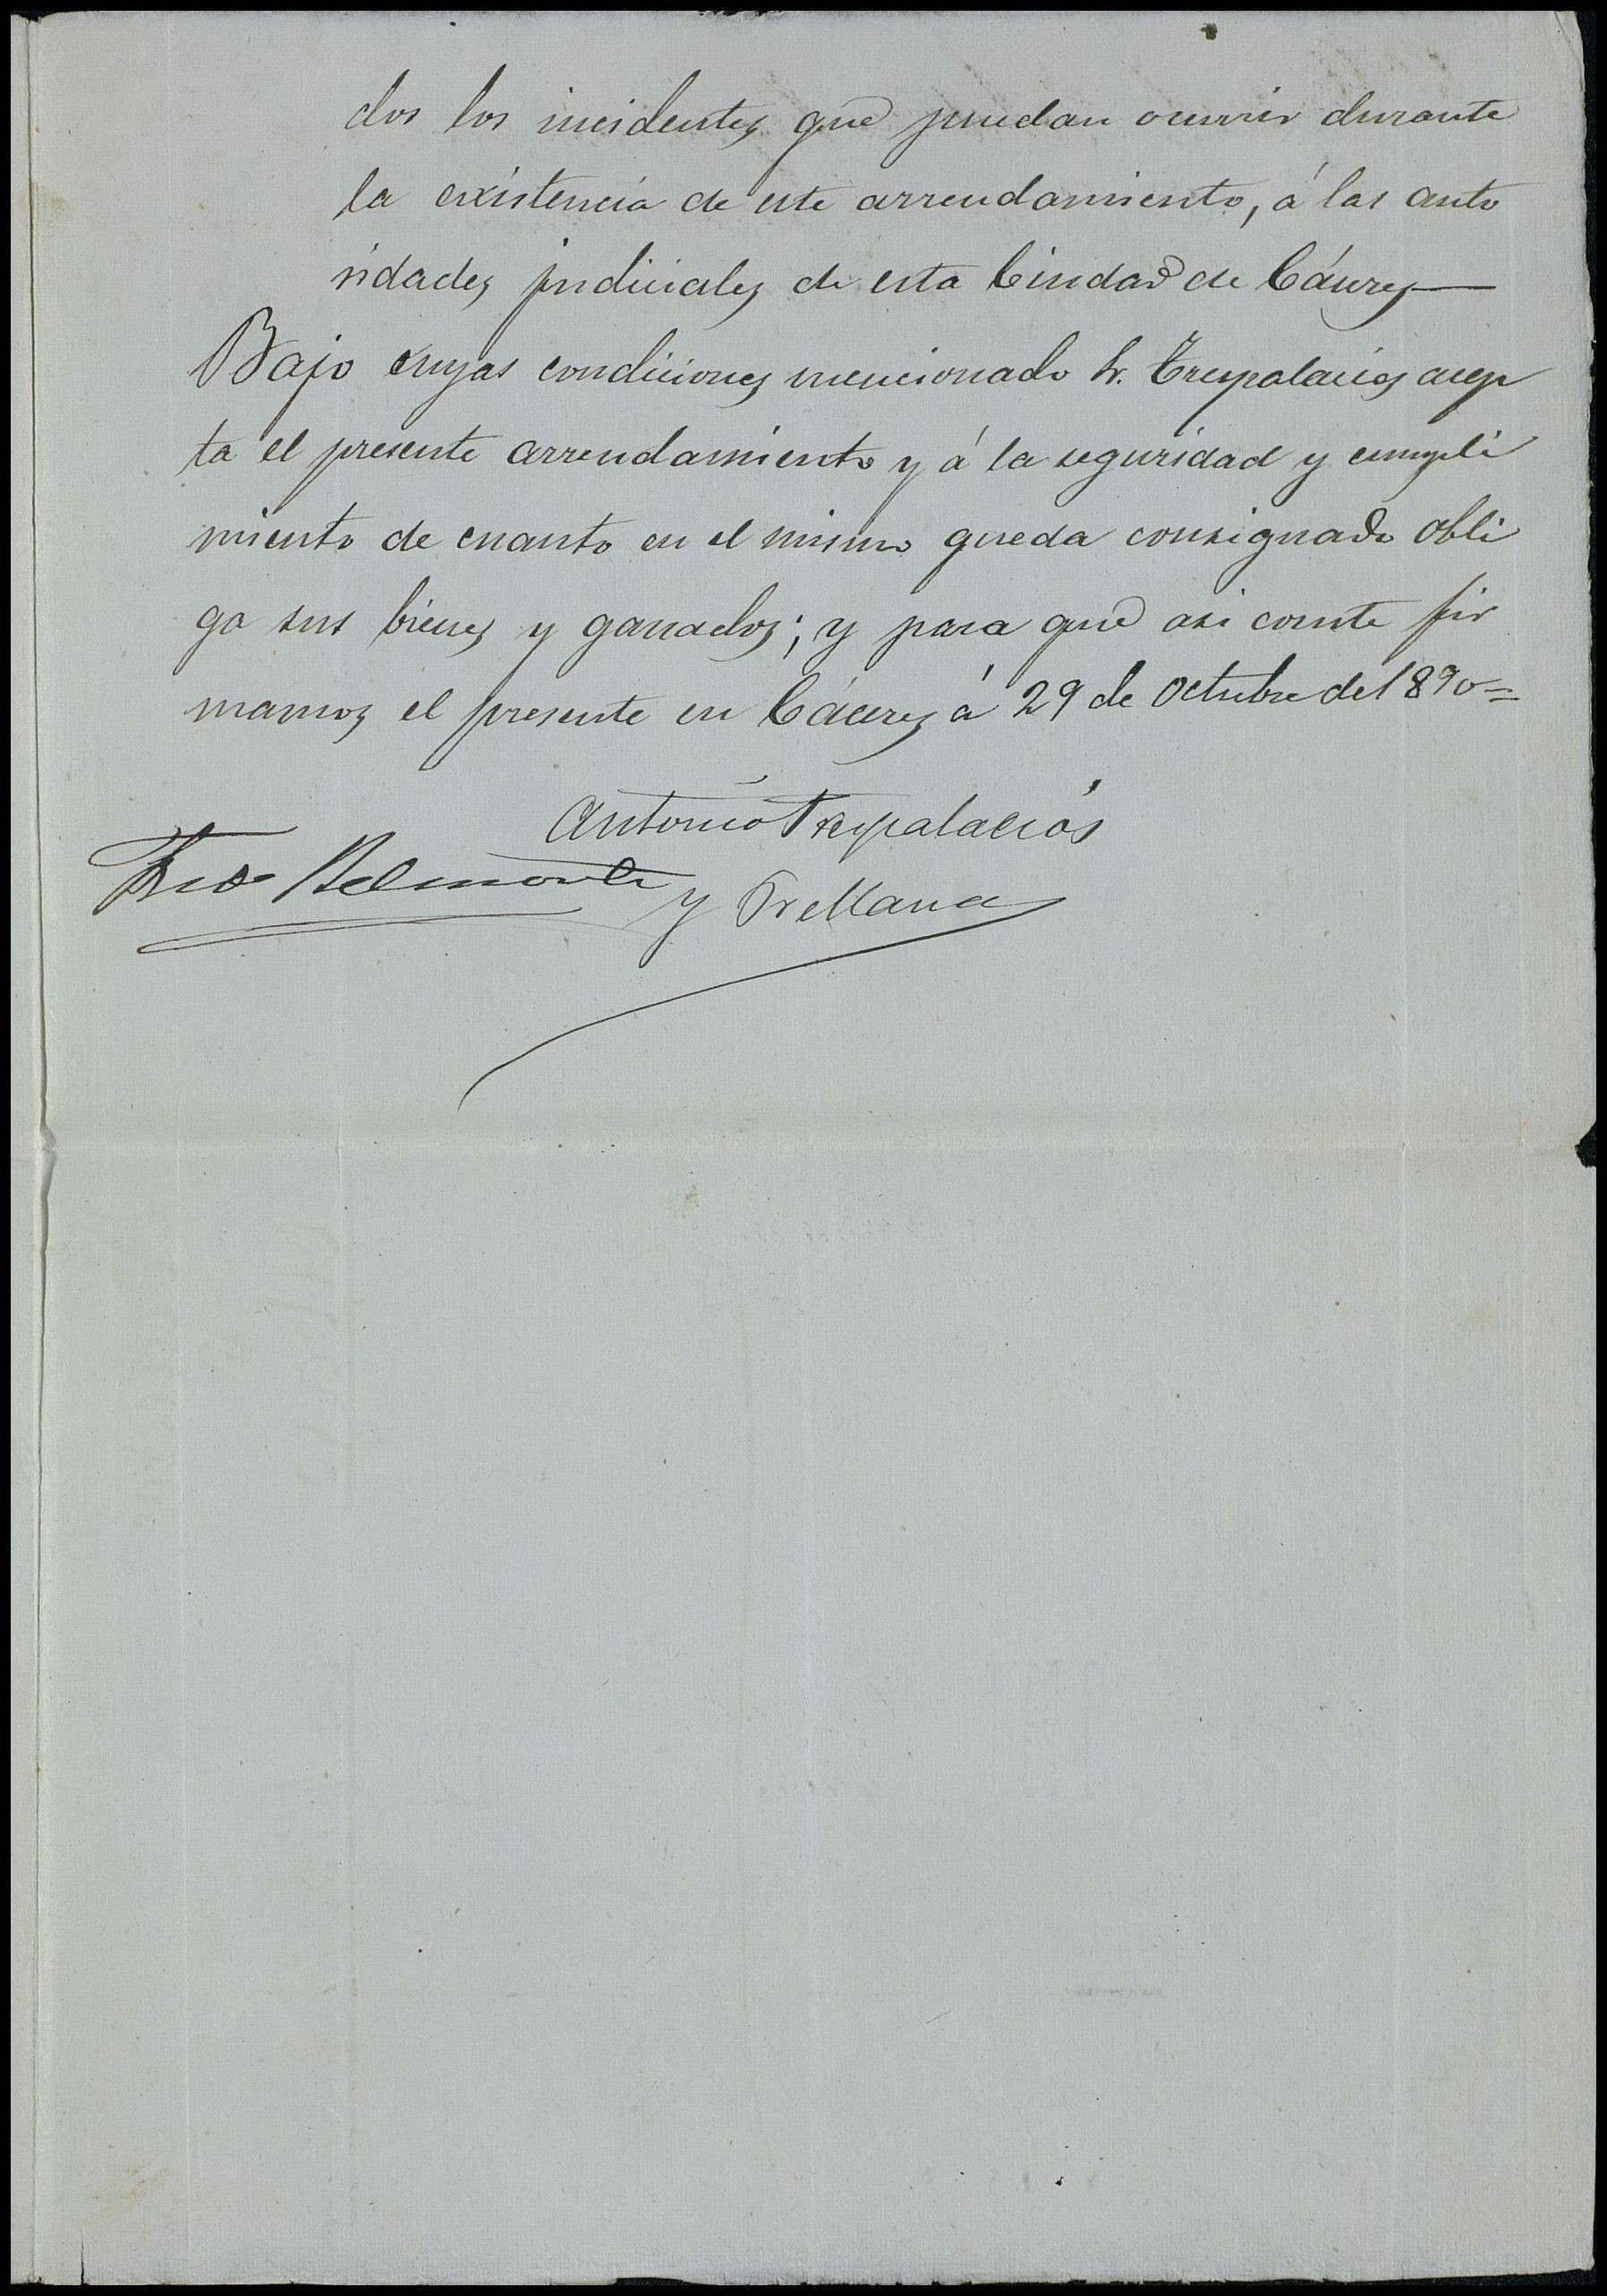 dos los incidentes que puedan ocurrir durante
la existencia de este arrendamiento, á las auto
ridades judiciales de esta Ciudad de Cáceres
Bajo cuyas condiciones mencionado Sr. Trespalacios acep
ta el presente arrendamiento y á la seguridad y cumpli
miento de cuanto en el mismo queda consignado obli
ga sus bienes y ganados; y para que asi conste fir
mamos el presente en Cáceres á 29 de Octubre de 1890=
Antonio Trespalacios
Belmonte
y Orellana